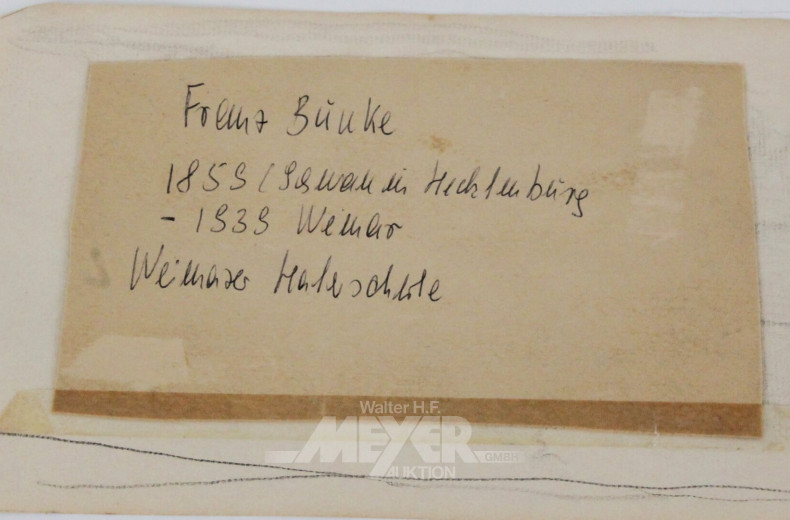 Franz Bunke
1859 (Schwaan in Mecklenburg
- 1939 Weimar
Weimarer Malerschule
Walter H.F.
MEYER
GMBH
AUKTION